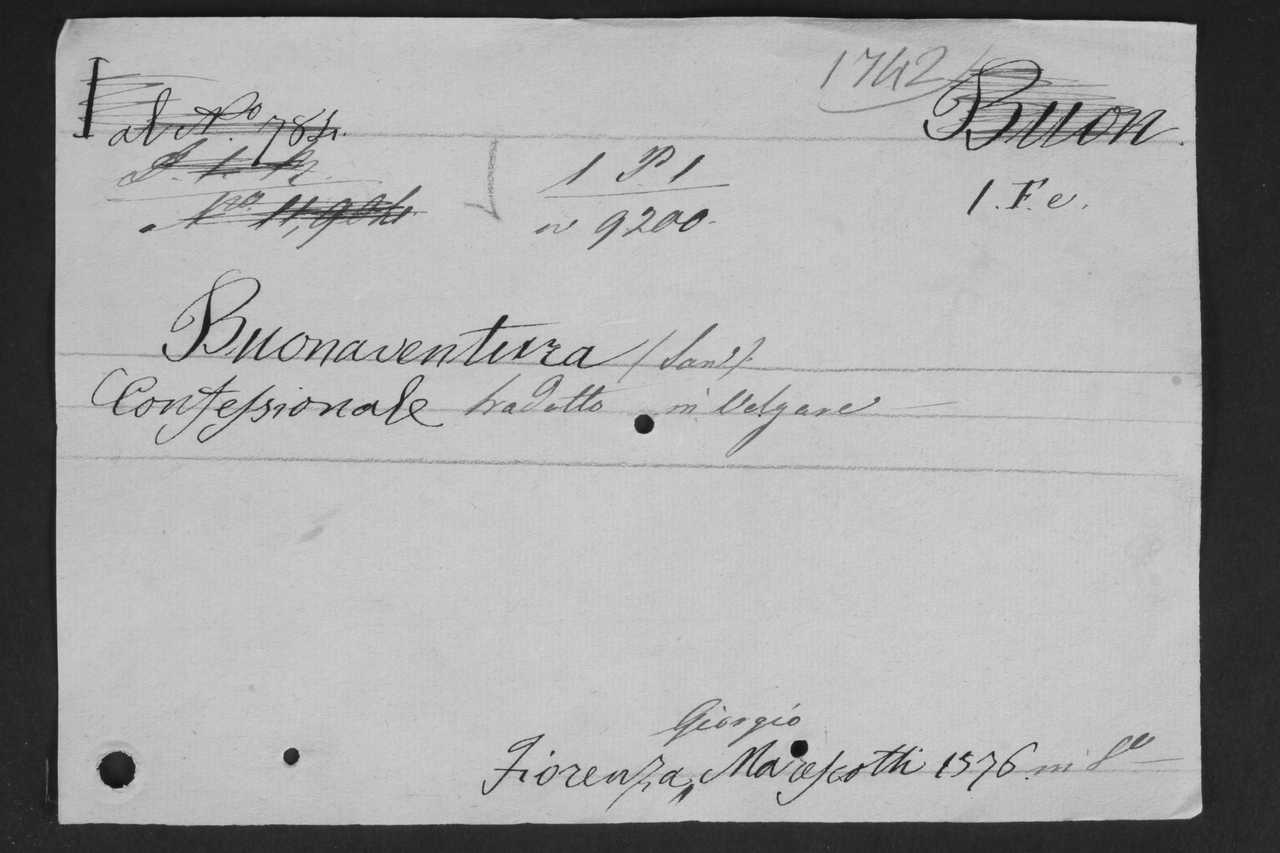 1742
Buon.
al No. 784.
1 P 1
1. F. e.
No 11,904
n 9200.
Buonaventura (San)
Confessionale tradotto in Volgare
Giorgio
Fiorenza, Marescotti 1576. in 8o